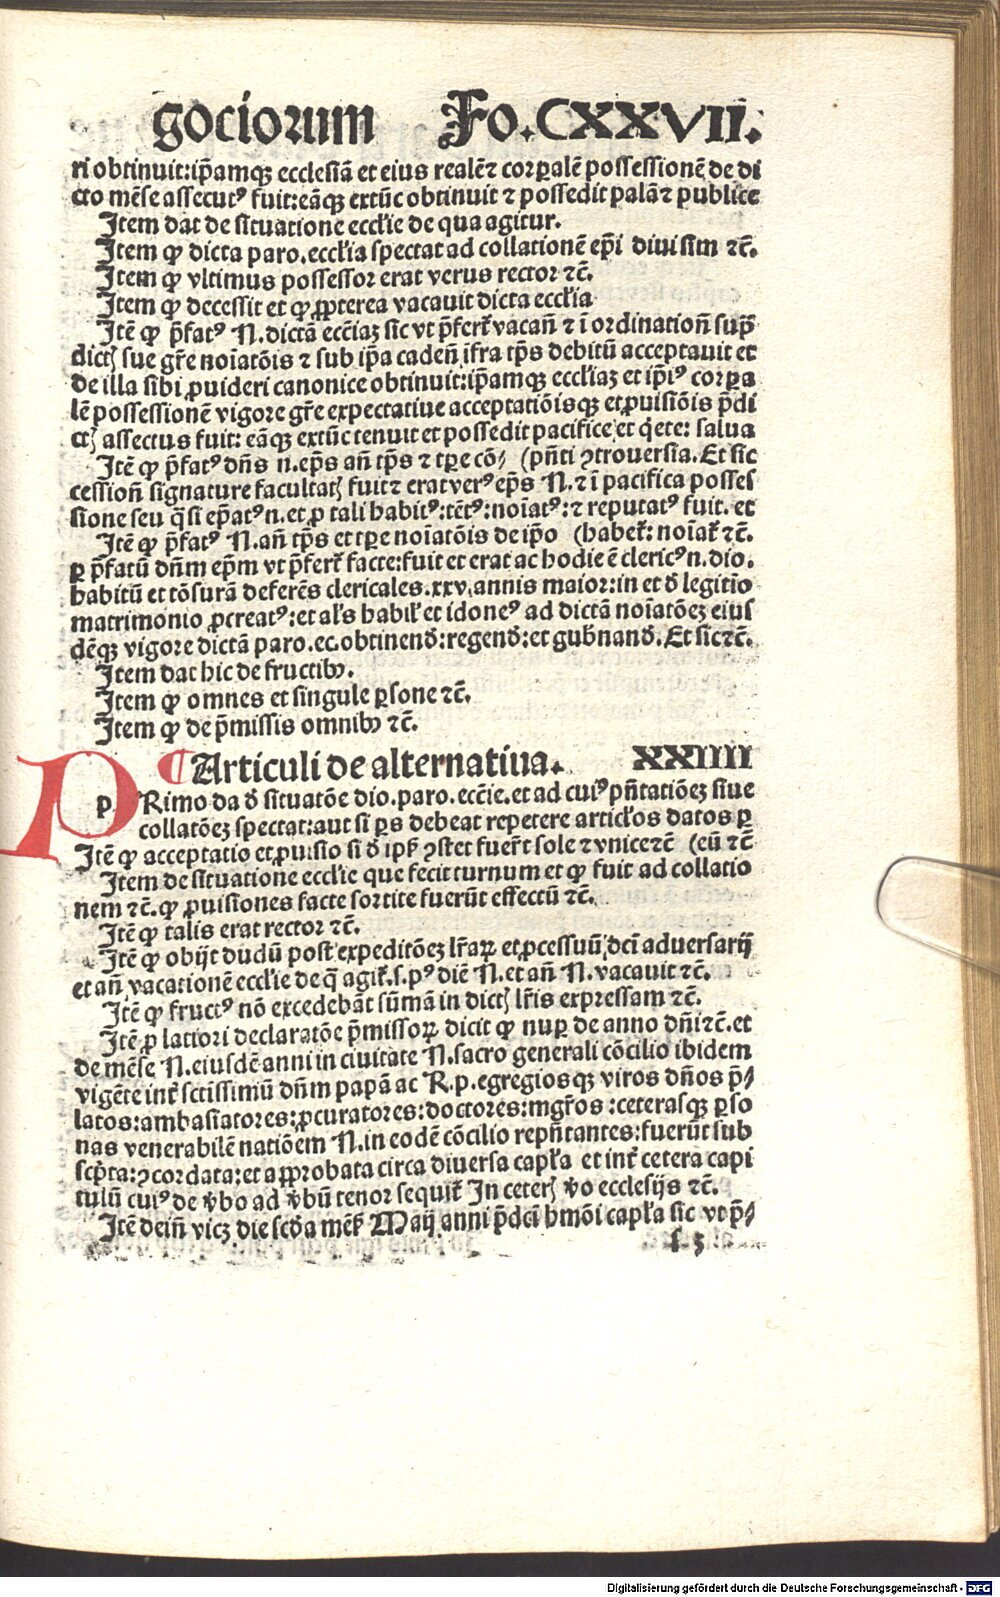 gociorum Fo.CXXVII.
ri obtinuit:ip̄amqꝫ ecclesiā et eius realē⁊ corꝑalē possessionē de di
cto mēse assecutꝰ fuit:eāqꝫ extūc obtinuit ⁊ possedit palā⁊ publice
Item dat de situatione eccl'ie de qua agitur.
Item ꝙ dicta paro.eccl'ia spectat ad collationē ep̄i diuisim ⁊c̄.
Item ꝙ vltimus possessor erat verus rector ⁊c̄.
Item ꝙ decessit et ꝙ ꝓpterea vacauit dicta eccl'ia
Itē ꝙ p̄fatꝰ N.dictā ecc̄iaꝫ sic vt p̄fert' vacan̄ ⁊ ī ordination̄ sup̄
dictꝭ sue gr̄e noīatōis ⁊ sub ip̄a caden̄ īfra tp̄s debitū acceptauit et
de illa sibi ꝓuideri canonice obtinuit:ip̄amqꝫ eccl'iaꝫ et ip̄iꝰ corꝑa
lē possessionē vigore gr̄e expectatiue acceptatiōisqꝫ et ꝓuisiōis p̄di
ctꝭ assectus fuit: eāqꝫ extūc tenuit et possedit pacifice et q̄ete: salua
Itē ꝙ p̄fatꝰ dn̄s n.ep̄s an̄ tp̄s ⁊ tꝑe cō⸗ (pn̄ti ꝯtrouersia.Et sic
cession̄ signature facultatꝭ fuit⁊ erat verꝰ ep̄s N.⁊ ī pacifica posses
sione seu q̄si ep̄atꝰ n.et ꝓ tali habitꝰ:tētꝰ:noīatꝰ:⁊ reputatꝰ fuit. et
Itē ꝙ p̄fatꝰ N.an̄ tp̄s et tꝑe noīatōis de ip̄o (habet':noīat' ⁊c̄.
ꝑ p̄fatū dn̄m ep̄m vt p̄fert' facte:fuit et erat ac hodie ē clericꝰ n.dio.
habitū et tōsurā deferēs clericales.xxv.annis maior:in et đ legitīo
matrimonio ꝓcreatꝰ:et al's habil' et idoneꝰ ad dictā noīatōeꝫ eius
dēqꝫ vigore dictā paro.ec.obtinenđ:regenđ:et gub̄nanđ.Et sic⁊c̄.
Item dat hic de fructibꝰ.
Item ꝙ omnes et singule ꝑsone ⁊c̄.
Item ꝙ de p̄missis omnibꝰ ⁊c̄.
¶ Articuli de alternatiua. XXIIII
PRimo da đ situatōe dio.paro.ecc̄ie.et ad cuiꝰ pn̄tatiōeꝫ siue
collatōeꝫ spectat:aut si ꝑs debeat repetere articl'os datos ꝑ
Itē ꝙ acceptatio et ꝓuisio si đ ip̄ꝭ ꝯstet fuer̄t sole ⁊ vnice⁊c̄ (eū ⁊c̄
Item de situatione eccl'ie que fecit turnum et ꝙ fuit ad collatio
nem ⁊c̄.ꝙ ꝓuisiones facte sortite fuerūt effectū ⁊c̄.
Itē ꝙ talis erat rector ⁊c̄.
Itē ꝙ obijt dudū post expeditōeꝫ lr̄aꝝ et ꝓcessuū dc̄i aduersarij
et an̄ vacationē eccl'ie de q̄ agit'.s.pꝰ diē N.et an̄ N.vacauit ⁊c̄.
Itē ꝙ fructꝰ nō excedebāt sūmā in dictꝭ lr̄is expressam ⁊c̄.
Itē ꝓ latiori declaratōe p̄missoꝝ dicit ꝙ nuꝑ de anno dn̄i⁊c̄.et
de mēse N.eiusdē anni in ciuitate N.sacro generali cōcilio ibidem
vigēte int' sctīssimū dn̄m papā ac R.p.egregiosqꝫ viros dn̄os p̄⸗
latos:ambasiatores:ꝓcuratores:doctores:mgr̄os:ceterasqꝫ ꝑso
nas venerabilē natiōem N.in eodē cōcilio repn̄tantes:fuerūt sub
scp̄ta:ꝯcordata:et aꝓprobata circa diuersa capl'a et int' cetera capi
tulū cuiꝰ de v̄bo ad v̄bū tenor sequit' In ceterꝭ v̄o ecclesijs ⁊c̄.
Itē dein̄ vicꝫ die scđa mēꝭ Maij anni p̄dc̄i hmōi capl'a sic vt p̄⸗
Digitalisierung gefördert durch die Deutsche Forschungsgemeinschaft - DFG